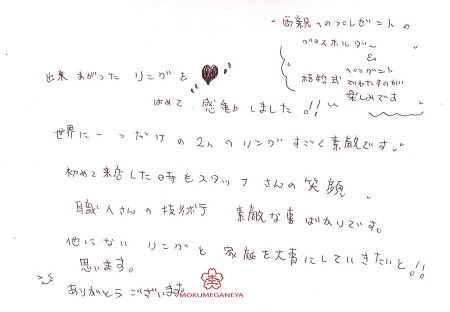 両親へのプレゼントの
グラスホルダー
&
ペンダント
結婚式でわたすのが
楽しみです
出来あがったリングを
はめて、感動しました!!
世界に一つだけの2人のリングすごく素敵です
初めて来店した時もスタッフさんの笑顔
職人さんの技術 素敵な事ばかりです。
他にないリングと家庭を大事にしていきたいと!!
思います。
ありがとうございます
MOKUMEGANEYA